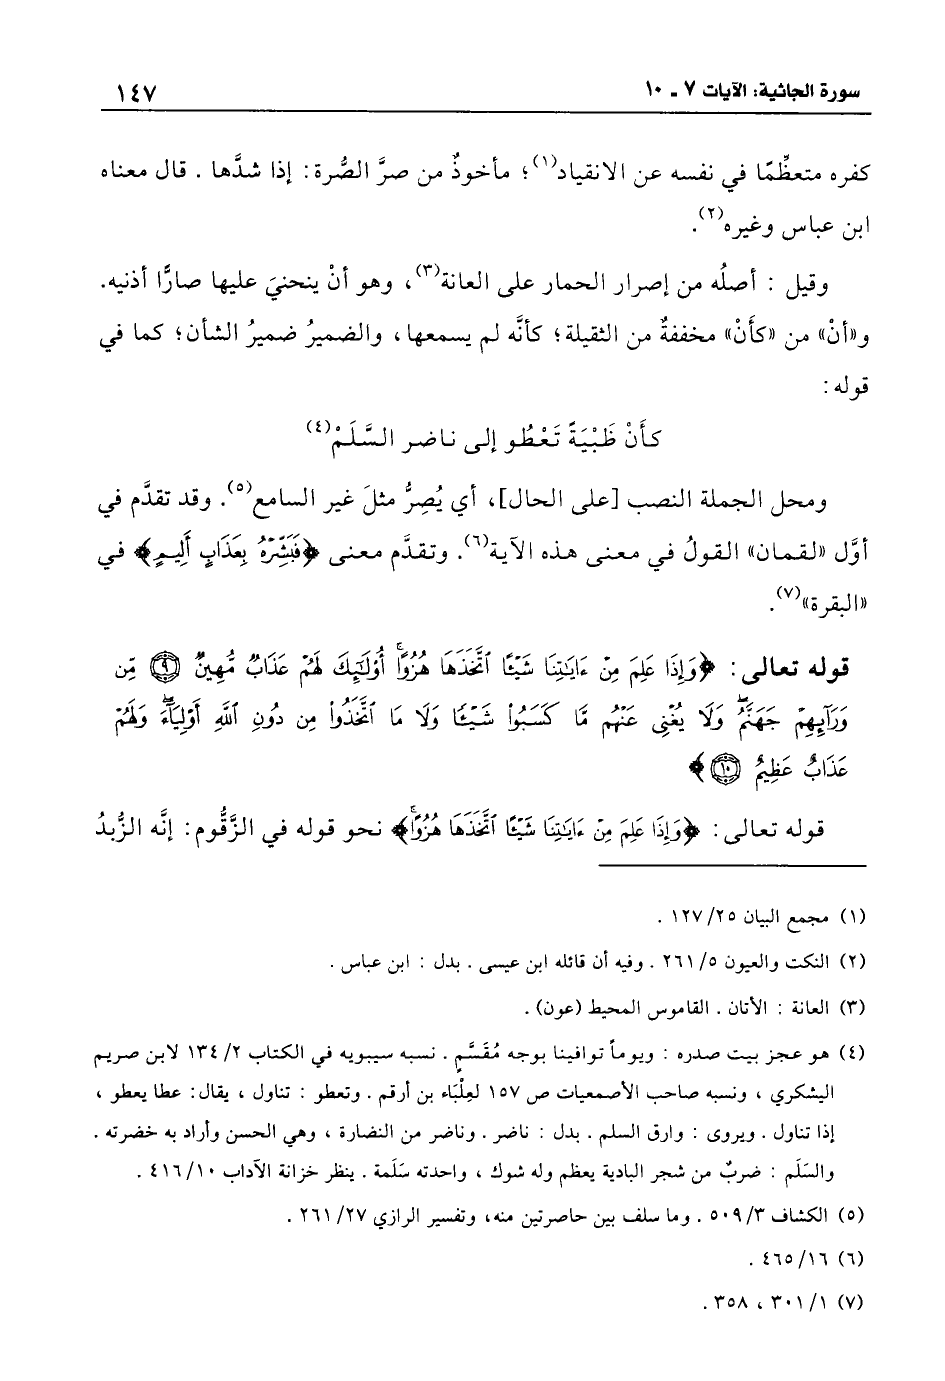 سورة الجاثية: الآيات ٧ ـ ١٠
١٤٧
كفره متعظِّمًا في نفسه عن الانقياد(١)؛ مأخوذٌ من صرَّ الصُّرة: إذا شدَّها . قال معناه
ابن عباس وغيره(٢).
وقيل : أصلُه من إصرار الحمار على العانة(٣)، وهو أنْ ينحنيَ عليها صارًّا أذنيه.
و«أنْ» من «كأَنْ» مخففةٌ من الثقيلة؛ كأنَّه لم يسمعها، والضميرُ ضميرُ الشأن؛ كما في
قوله:
كأَنْ ظَبْيَةً تَعْطُو إلى ناضر السَّلَمْ(٤)
ومحل الجملة النصب [على الحال]، أي يُصِرُّ مثلَ غير السامع(٥). وقد تقدَّم في
أوَّل «لقمان» القولُ في معنى هذه الآية(٦). وتقدَّم معنى ﴿فَبَشِّرْهُ بِعَذَابٍ أَلِيمٍ﴾ في
«البقرة»(٧).
قوله تعالى: ﴿وَإِذَا عَلِمَ مِنْ ءَايَٰتِنَا شَيْـًٔا ٱتَّخَذَهَا هُزُوًاۚ أُو۟لَٰٓئِكَ لَهُمْ عَذَابٌ مُّهِينٌ ۝٩ مِّن
وَرَآئِهِمْ جَهَنَّمُۖ وَلَا يُغْنِى عَنْهُم مَّا كَسَبُوا۟ شَيْـًٔا وَلَا مَا ٱتَّخَذُوا۟ مِن دُونِ ٱللَّهِ أَوْلِيَآءَۖ وَلَهُمْ
عَذَابٌ عَظِيمٌ ۝١٠﴾
قوله تعالى: ﴿وَإِذَا عَلِمَ مِنْ ءَايَٰتِنَا شَيْـًٔا ٱتَّخَذَهَا هُزُوًاۚ﴾ نحو قوله في الزَّقُّوم: إنَّه الزُّبدُ
(١) مجمع البيان ٢٥/ ١٢٧ .
(٢) النكت والعيون ٥/ ٢٦١ . وفيه أن قائله ابن عيسى . بدل : ابن عباس .
(٣) العانة : الأتان . القاموس المحيط (عون) .
(٤) هو عجز بيت صدره : ويوماً توافينا بوجه مُقَسَّمٍ . نسبه سيبويه في الكتاب ٢/ ١٣٤ لابن صريم
اليشكري ، ونسبه صاحب الأصمعيات ص ١٥٧ لعِلْبَاء بن أرقم . وتعطو : تناول ، يقال: عطا يعطو ،
إذا تناول . ويروى : وارق السلم . بدل : ناضر . وناضر من النضارة ، وهي الحسن وأراد به خضرته .
والسَلَم : ضربٌ من شجر البادية يعظم وله شوك ، واحدته سَلَمة . ينظر خزانة الآداب ١٠/ ٤١٦ .
(٥) الكشاف ٣/ ٥٠٩ . وما سلف بين حاصرتين منه، وتفسير الرازي ٢٧/ ٢٦١ .
(٦) ١٦/ ٤٦٥ .
(٧) ١/ ٣٠١ ، ٣٥٨ .